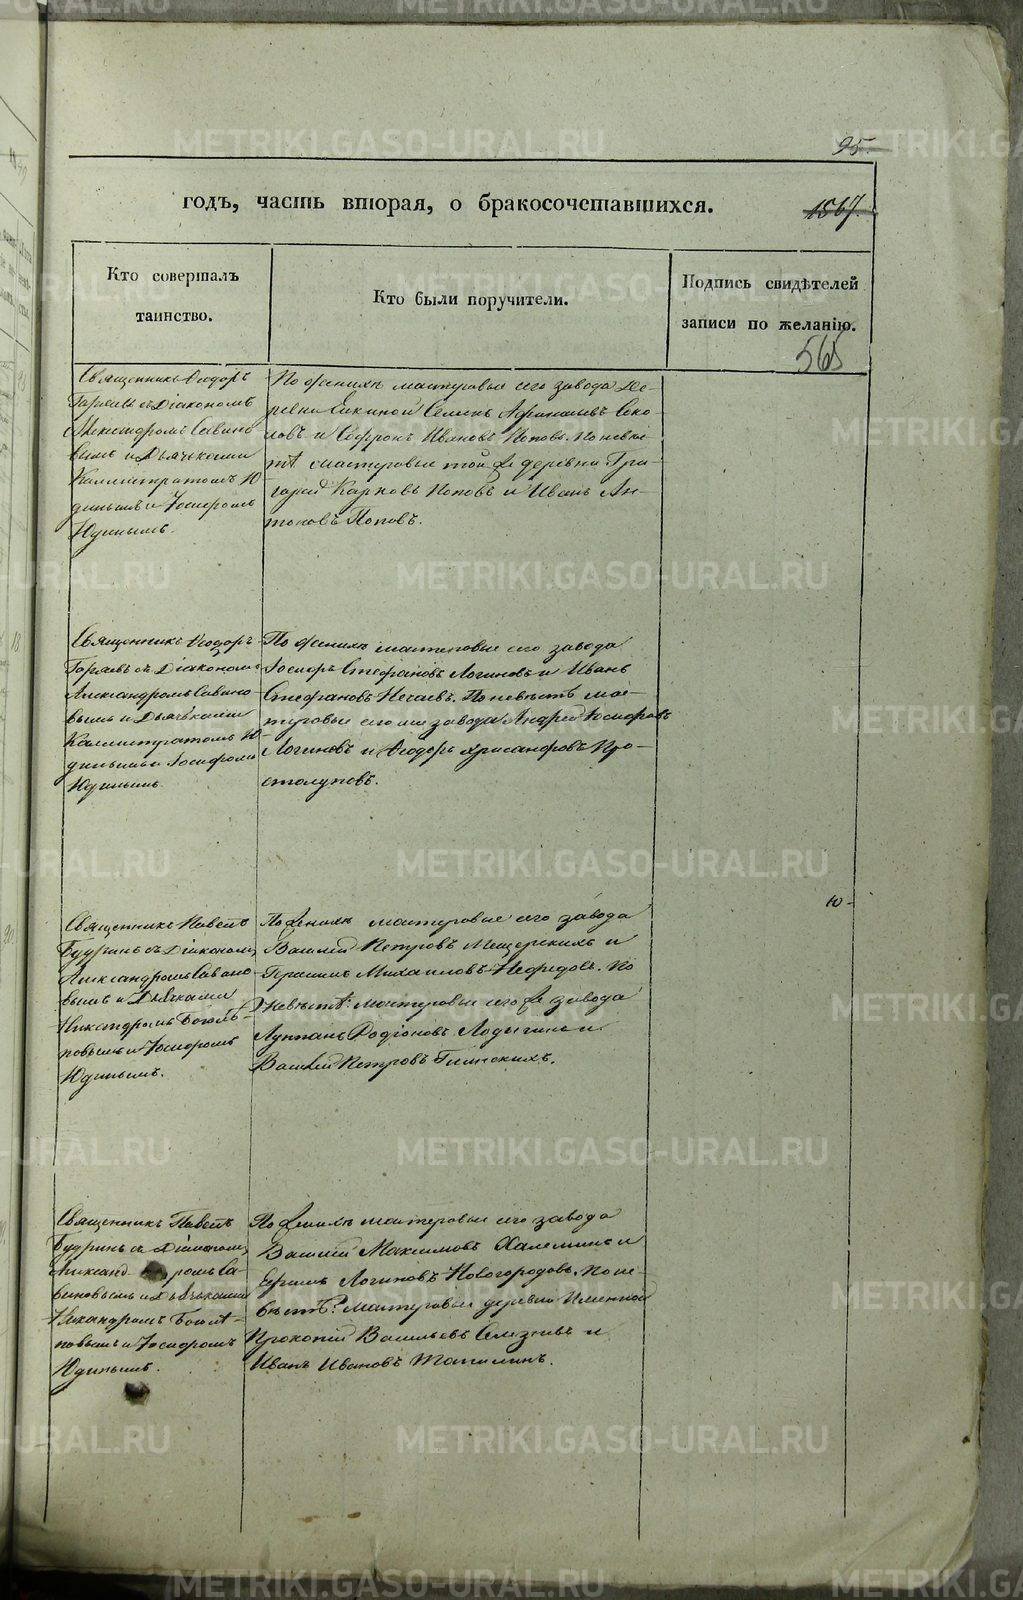 95.
годъ, часть вторая, о бракосочетавшихся.
1567.
Кто совершалъ
таинство.
Кто были поручители.
Подпись свидѣтелей
записи по желанію.
565
Священникъ Ѳеодоръ
съ Діакономъ
Александромъ Савино-
вымъ и Дьячьками
Каллистратомъ Ю-
динымъ и Іосифомъ
Юдинымъ.
По женихѣ мастеровые сего завода де-
ревни Семенъ Афанасьевъ Соко-
ловъ и Софронъ Ивановъ Поповъ. По невѣс-
тѣ мастеровые той же деревни Гри-
горій Карповъ Поповъ и Иванъ Ан-
тоновъ Поповъ.
Священникъ Ѳеодоръ
съ Діакономъ
Александромъ Савино-
вымъ и Дьячьками
Каллистратомъ Ю-
динымъ и Іосифомъ
Юдинымъ.
По женихѣ мастеровые сего завода
Іосифъ Стефановъ Логиновъ и Иванъ
Стефановъ По невѣстѣ мас-
теровые сего же завода Андрей Іосифовъ
Логиновъ и Ѳеодоръ Хрисанфовъ Про-
столуповъ.
Священникъ Павелъ
Будринъ съ Діакономъ
Александромъ Савино-
вымъ и Дьячками
Никандромъ Богомѣ-
повымъ и Іосифомъ
Юдинымъ.
По женихѣ мастеровые сего завода
Василій Петровъ Мещерскихъ и
Герасимъ Михаиловъ Нефедовъ. По
невѣстѣ: мастеровые сего же завода
Родіоновъ Ладыгинъ и
Василій Петровъ
Ю-
Священникъ Павелъ
Будринъ съ Діакономъ
Александромъ Са-
виновымъ и Дьячьками
Никандромъ
и Іосифомъ
Юдинымъ.
По женихѣ мастеровые сего завода
Василій Максимовъ Халеминъ и
Логиновъ Новогородовъ. По не-
вѣстѣ: мастеровые деревни
Прокопій Васильевъ Селезневъ и
Иванъ Ивановъ
METRIKI.GASO-URAL.RU